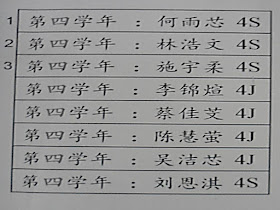 1 第四学年 : 何雨芯 4S
2 第四学年 : 林浩文 4S
3 第四学年 : 施宇柔 4S
第四学年 : 李锦煊 4J
第四学年 : 蔡佳芠 4J
第四学年 : 陈慧萤 4J
第四学年 : 吴洁芯 4J
第四学年 : 刘恩淇 4S